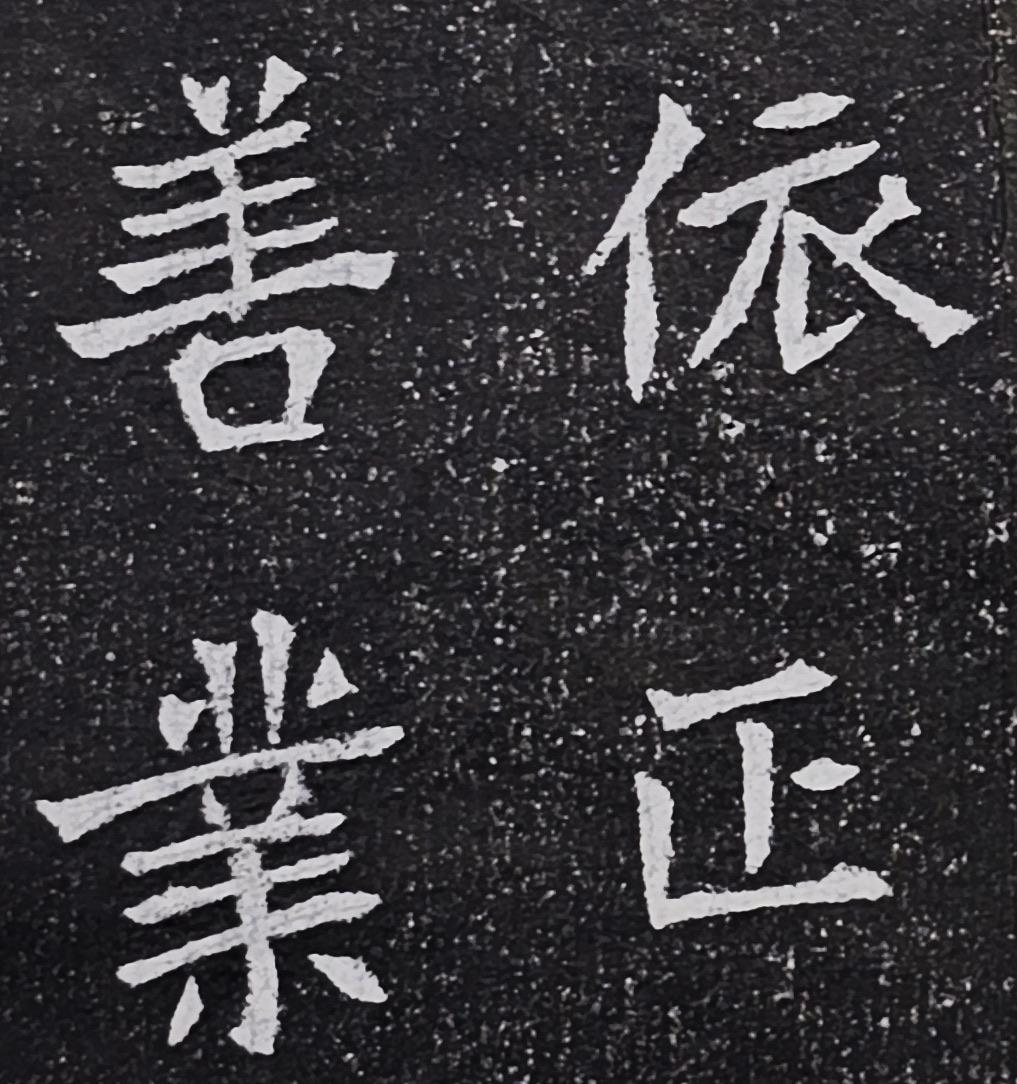 依正
善業